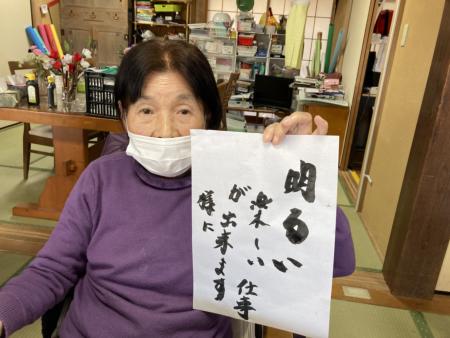 明るい
楽しい仕事
が出来ます
様に